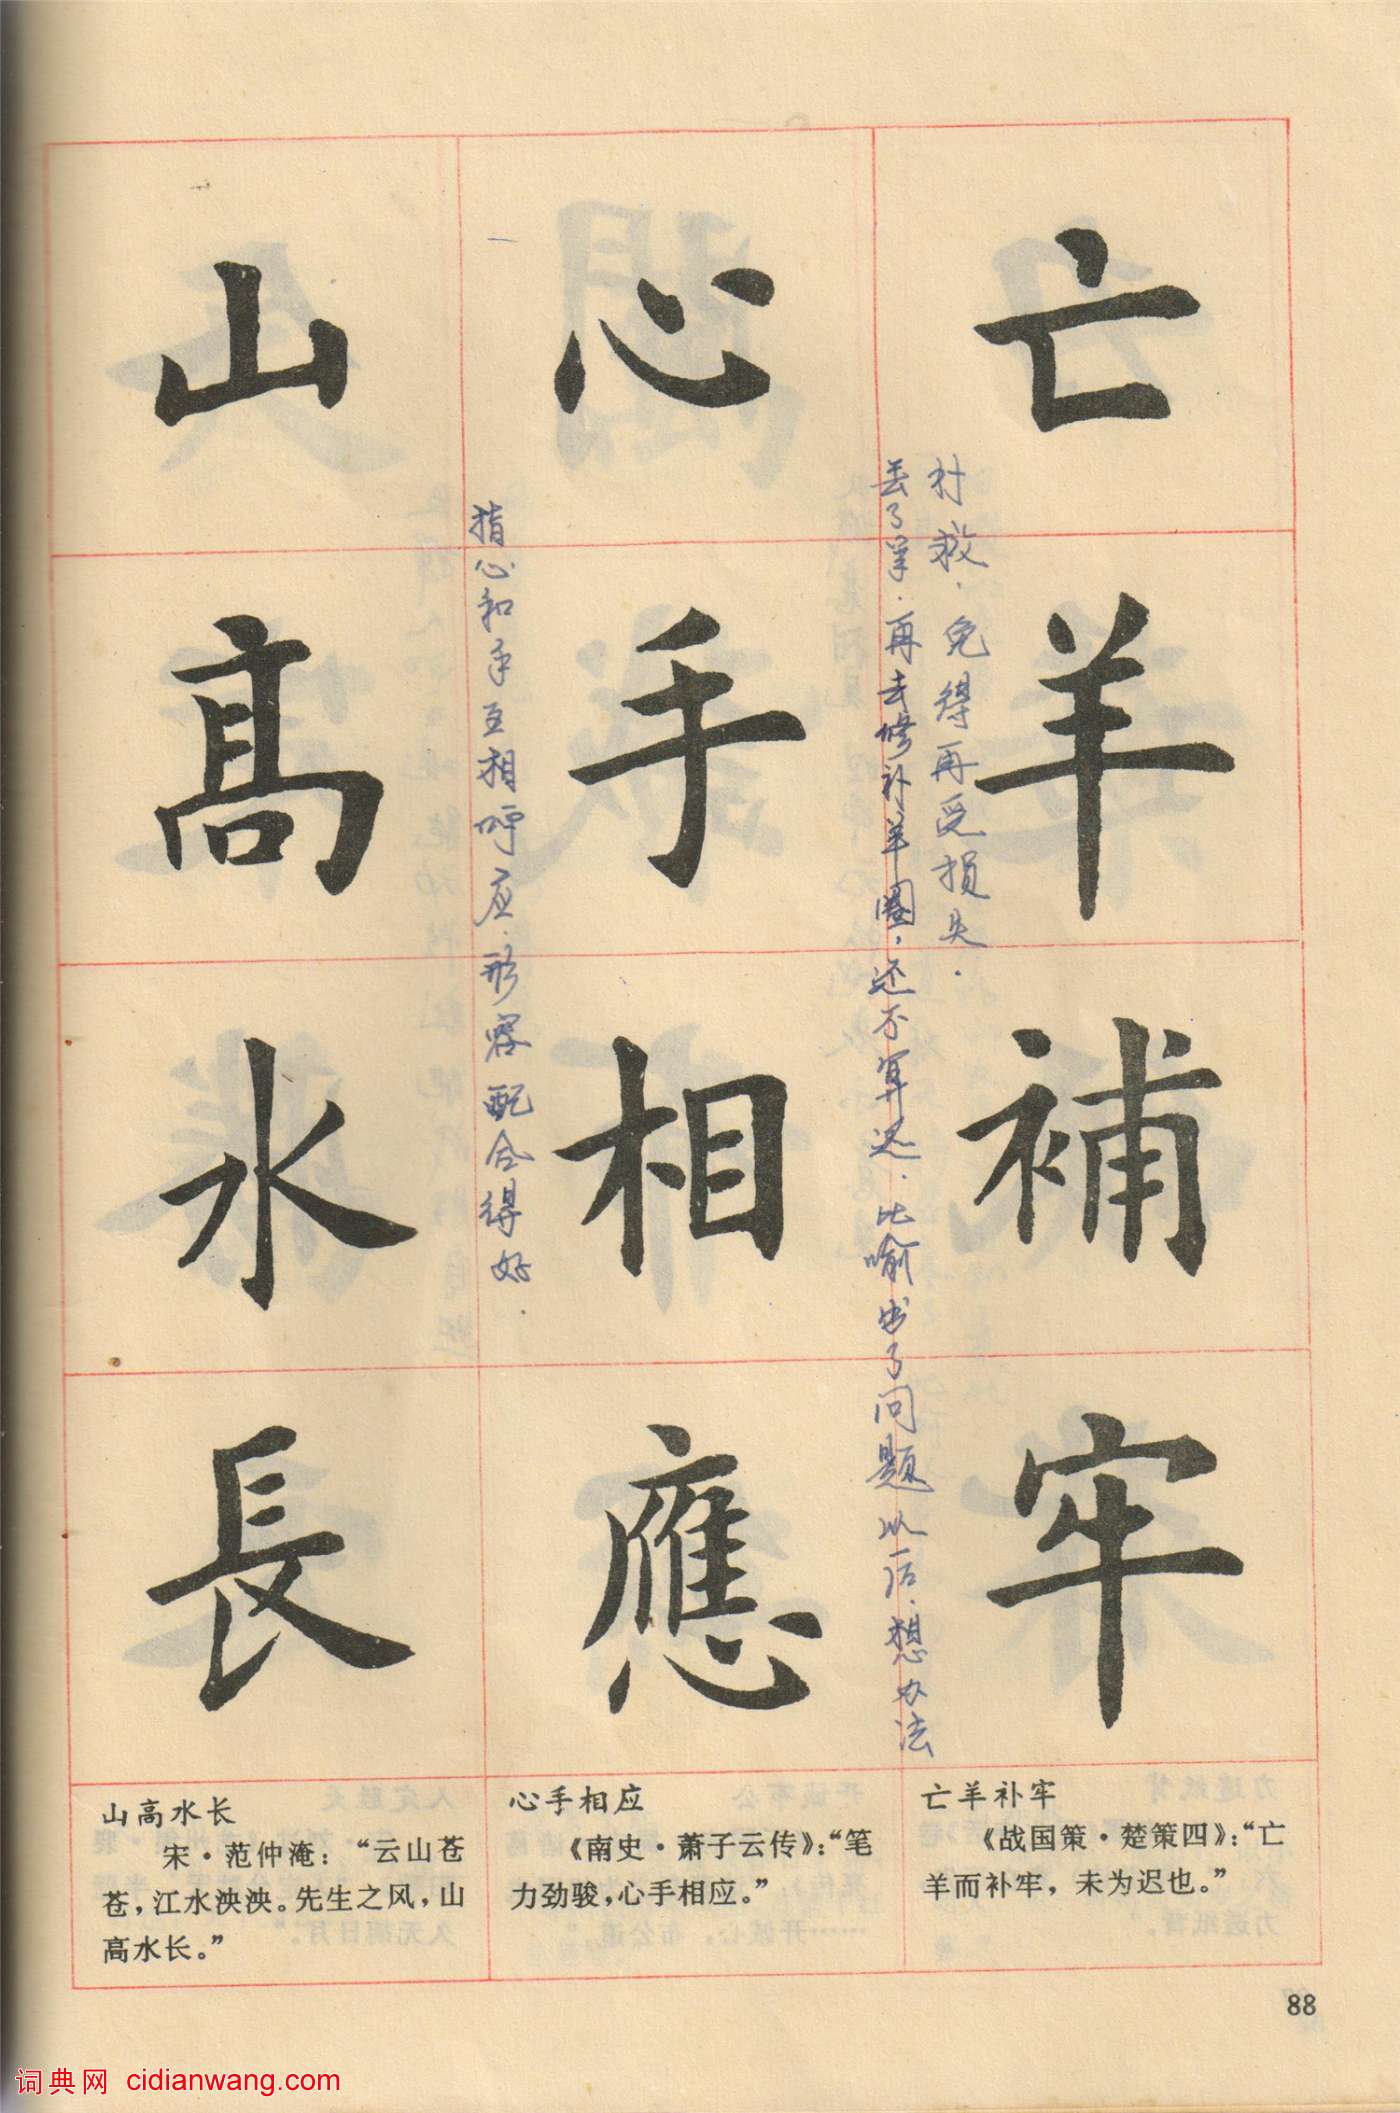 亡羊補牢
补救．免得再受损失．
丢了羊．再去修补羊圈，还不算迟．比喻出了问题以后．想办法
心手相應
指心和手互相呼应．形容配合得好．
山高水長
亡羊补牢
《战国策·楚策四》：“亡
羊而补牢，未为迟也。”
心手相应
《南史·萧子云传》：“笔
力劲骏，心手相应。”
山高水长
宋·范仲淹：“云山苍
苍，江水泱泱。先生之风，山
高水长。”
88
词典网 cidianwang.com